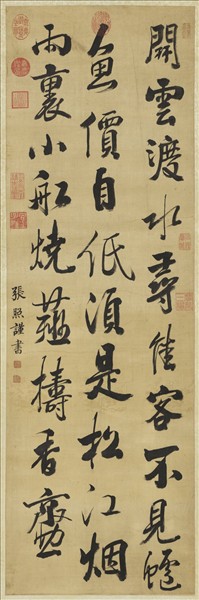 開雲渡水尋佳客不見鱸
魚價自低須是松江烟
雨裏小舡燒薤擣香韲
張照謹書